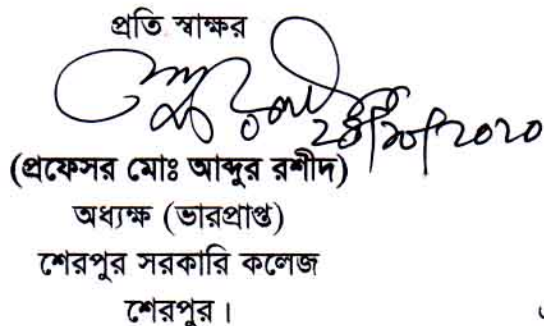 প্রতি স্বাক্ষর
(প্রফেসর মোঃ আব্দুর রশীদ)
অধ্যক্ষ (ভারপ্রাপ্ত)
শেরপুর সরকারি কলেজ
শেরপুর।